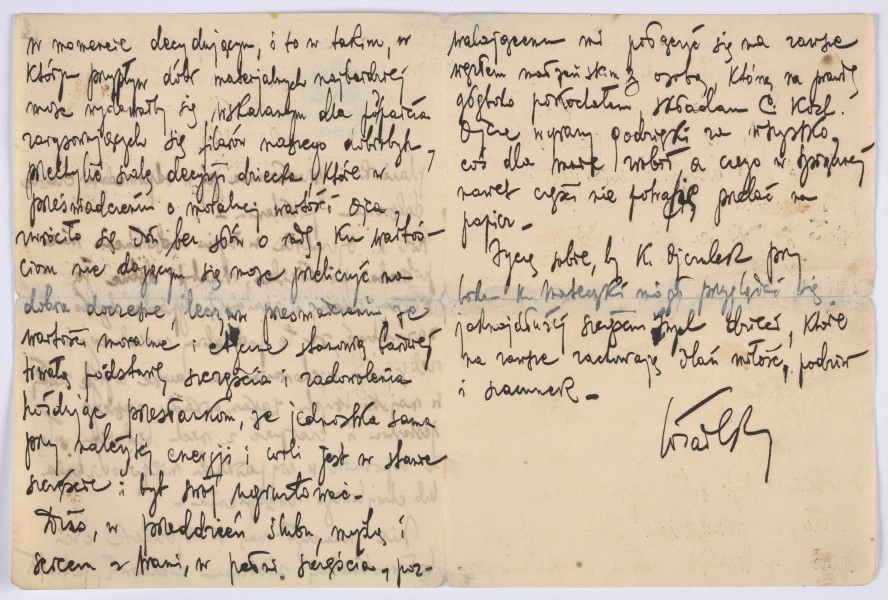 w momencie decydującym, i to w takim, w
którym przypływ dóbr materjalnych najbardziej
może wydawałby się wskazanym dla poparcia
zarysowujących się filarów naszego dobrobytu,
przechylić szalę decyzji dziecka które w
przeświadczeniu o moralnej wartości Ojca,
zwróciło się doń bez słów o radę, ku wartoś-
ciom nie dającym się może przeliczyć na
dobra doczesne, lecz w przeświadczeniu, że
wartości moralne i etyczne stanowią bardziej
trwałą podstawę szczęścia i zadowolenia
hołdując przesłankom, że jednostka sama
przy należytej energji i woli jest w stanie
szczęście i byt swój ugruntować.-
Dziś, w przeddzień ślubu, myślą i
sercem z Wami, w pełni szczęścia, poz-
walającem mi połączyć się na zawsze
węzłem małżeńskim z osobą, którą na prawdę
głęboko pokochałem, składam C. Koch.
Ojcu wyrazy podzięki za wszystko,
coś dla mnie zrobił a czego w
nawet części nie potrafię przelać na
papier.-
Życzę sobie, by K. Ojczulek przy
boku K. Mateczki mógł przyglądać się
jaknajdłużej szczęściu Swych dzieci, które
na zawsze zachowają dlań miłość, podziw
i szacunek.-